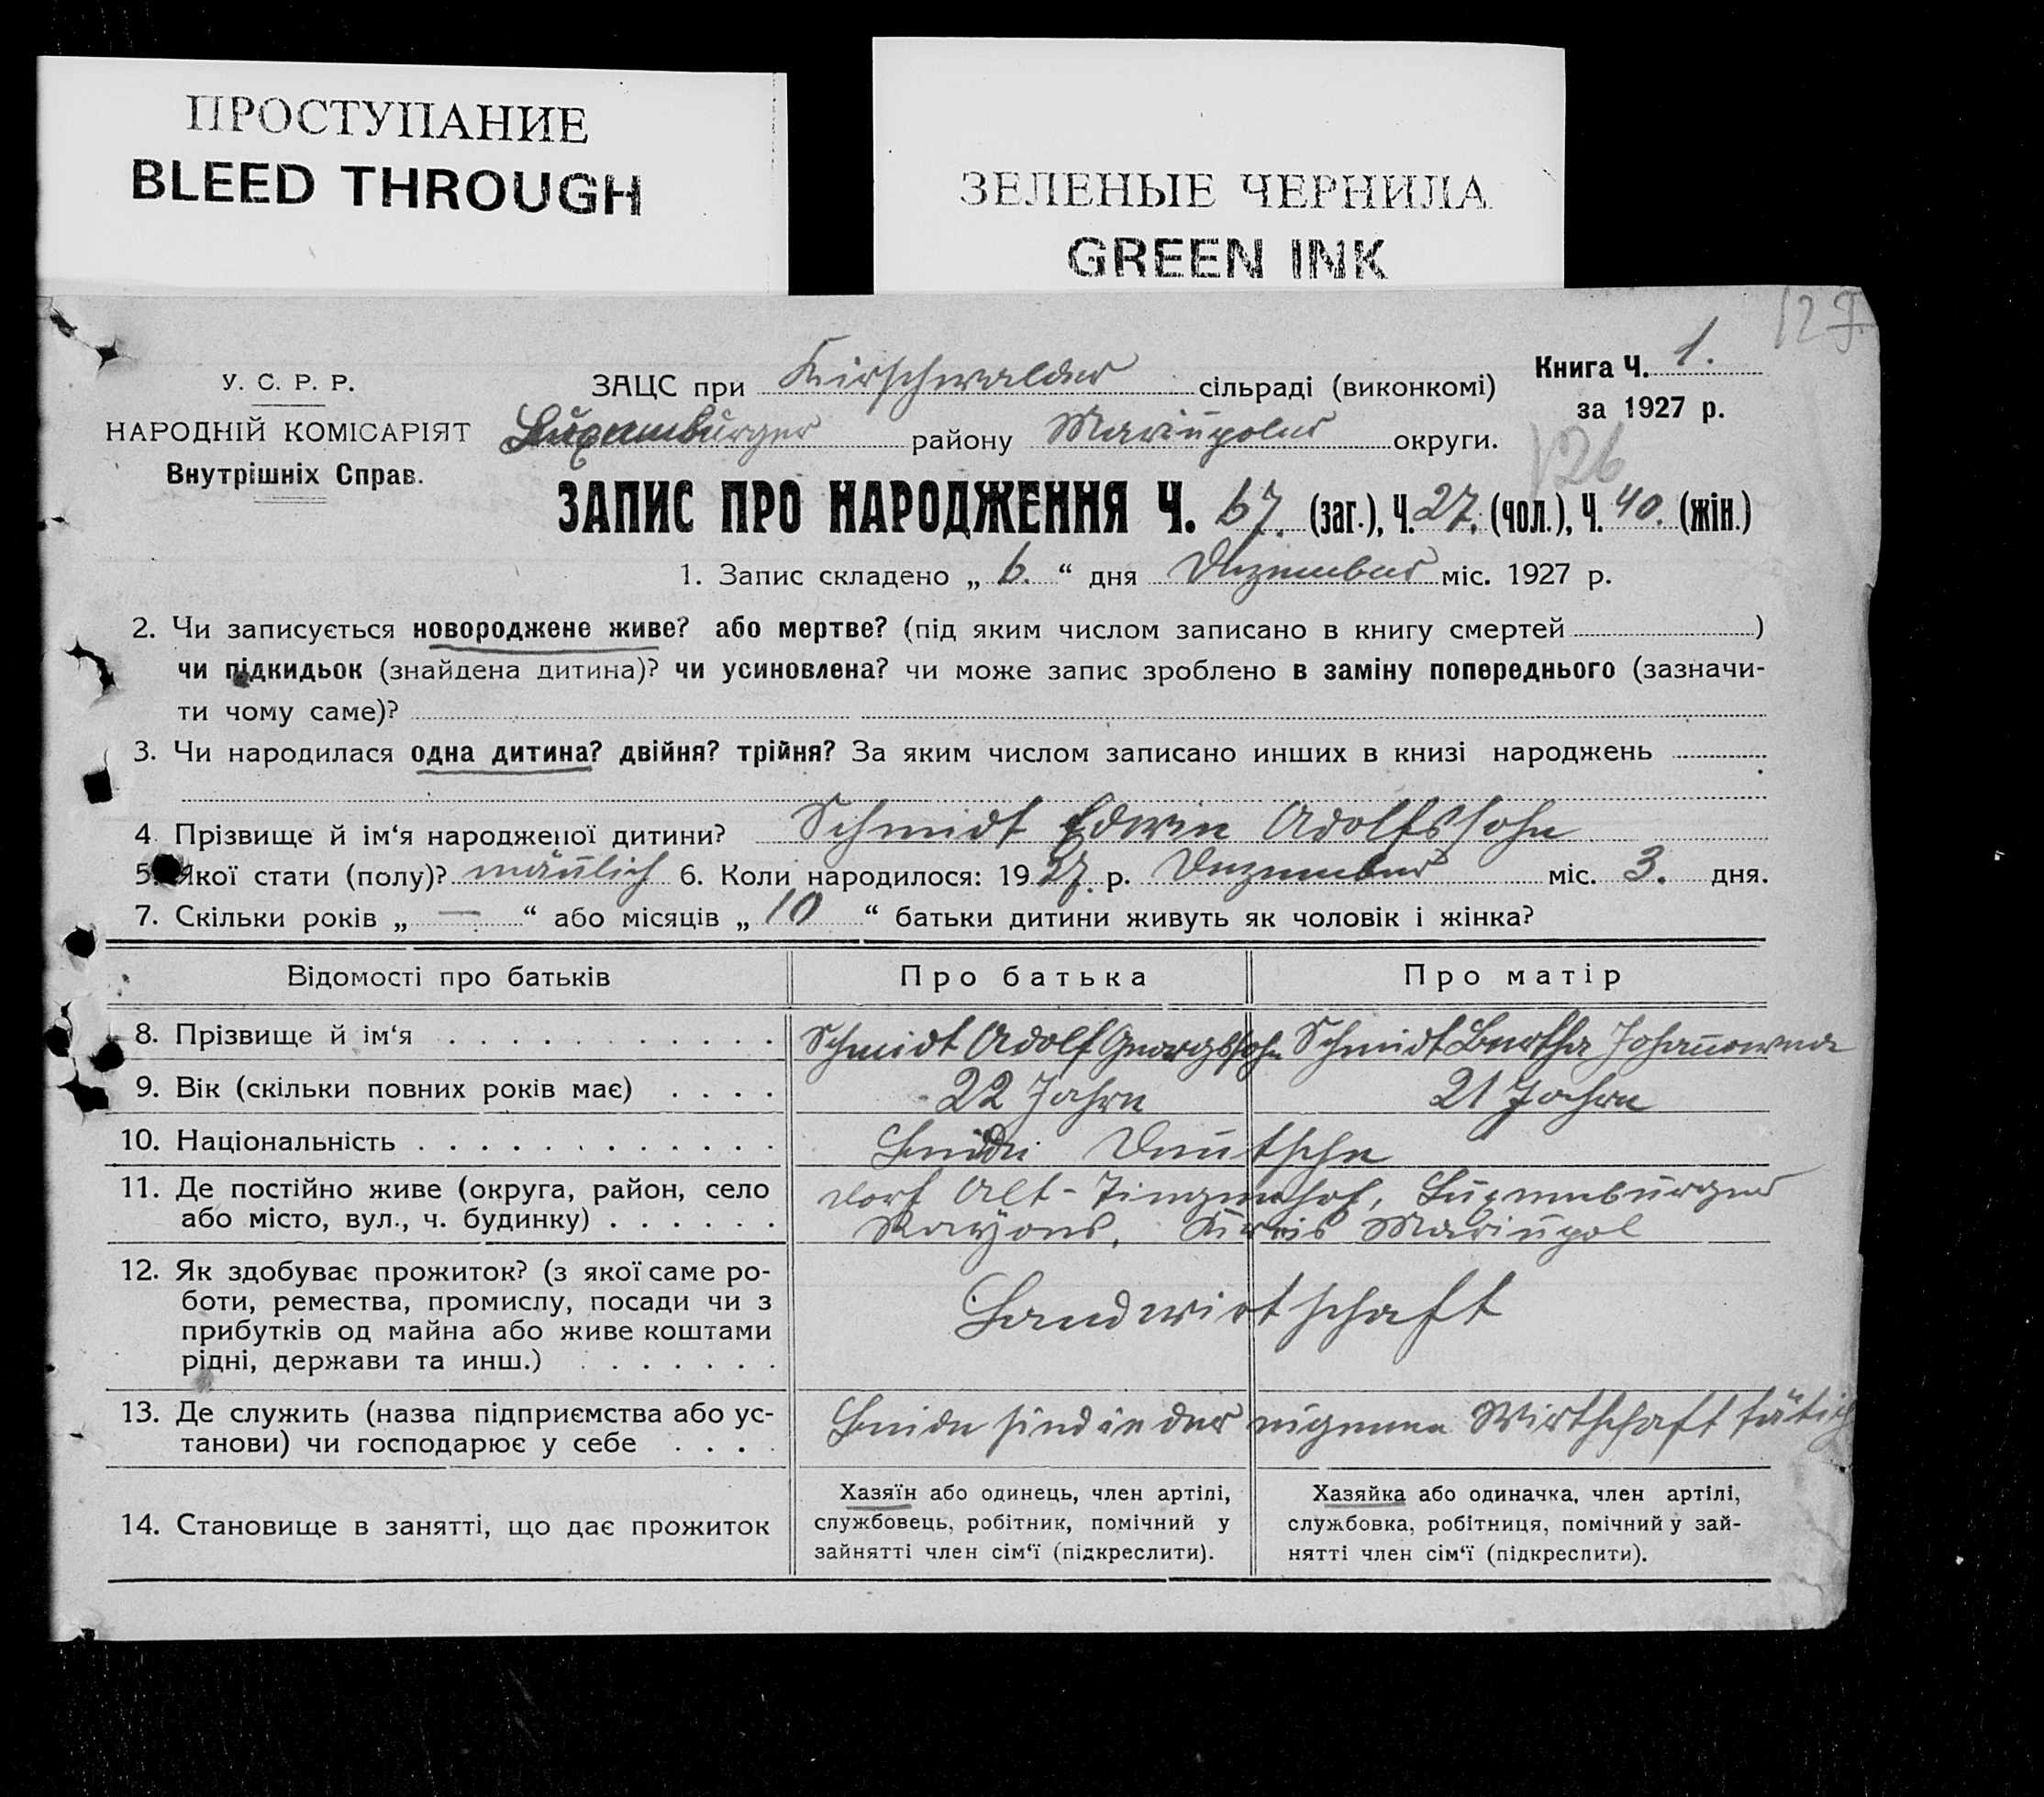 ПРОСТУПАНИЕ
BLEED THROUGH
ЗЕЛЕНЫЕ ЧЕРНИЛА
GREEN INK
У. С. Р. Р.
НАРОДНІЙ КОМІСАРІЯТ
Внутрішніх Справ.
ЗАЦС при Kirschwalder сільраді (виконкомі)
Luxemburger району Mariupoler округи.
Книга Ч. 1.
за 1927 р.
126
ЗАПИС ПРО НАРОДЖЕННЯ Ч. 67. (заг.), Ч. 27. (чол.), Ч. 40. (жін.)
1. Запис складено „ 6. “ дня Dezember міс. 1927 р.
2. Чи записується новороджене живе? або мертве? (під яким числом записано в книгу смертей )
чи підкидьок (знайдена дитина)? чи усиновлена? чи може запис зроблено в заміну попереднього (зазначи-
ти чому саме)?
3. Чи народилася одна дитина? двійня? трійня? За яким числом записано инших в книзі народжень
4. Прізвище й ім‘я народженої дитини? Schmidt Edwin Adolfssohn
5. Якої стати (полу)? mäňlich 6. Коли народилося: 1927. р. Dezember міс. 3. дня.
7. Скільки років „ — “ або місяців „ 10 “ батьки дитини живуть як чоловік і жінка?
Відомості про батьків Про батька Про матір
8. Прізвище й ім‘я Schmidt Adolf Georgssohn Schmidt Bertha Johanowna
9. Вік (скільки повних років має) 22 Jahre 21 Jahre
10. Національність Beide Deutsche
11. Де постійно живе (округа, район, село Dorf Alt-Tiegenhof, Luxemburger
або місто, вул., ч. будинку) Rayons, Kreis Mariupol
12. Як здобуває прожиток? (з якої саме ро-
боти, ремества, промислу, посади чи з Landwirtschaft
прибутків од майна або живе коштами
рідні, держави та инш.)
13. Де служить (назва підприємства або ус- Beide sind in der eigenen Wirtschaft tätich
танови) чи господарює у себе
14. Становище в занятті, що дає прожиток
Хазяїн або одинець, член артілі,
службовець, робітник, помічний у
зайнятті член сім‘ї (підкреслити).
Хазяйка або одиначка, член артілі,
службовка, робітниця, помічний у зай-
нятті член сім‘ї (підкреслити).